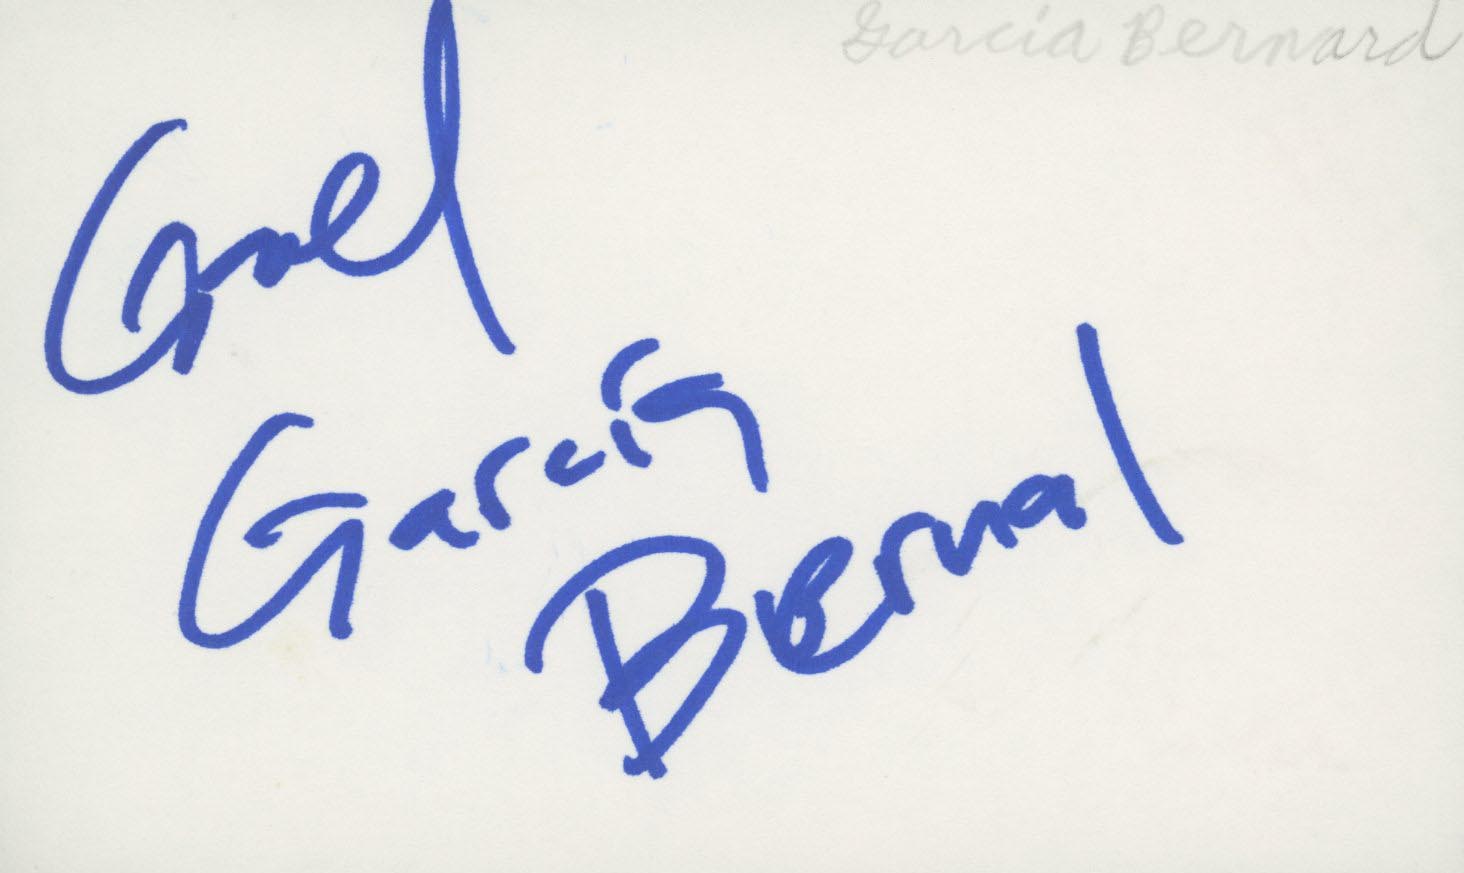 Garcia Bernard
Gael
García
Bernal